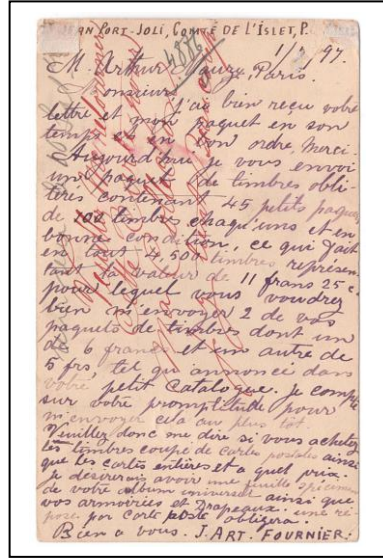 JEAN PORT-JOLI, COMTÉ DE L'ISLET, P.
1/2/97.
M. Arthur Maury, Paris.
Monsieur
J'ai bien reçu votre
lettre et mon paquet en son
temps et en bon ordre, merci.
Aujourd'hui je vous envoi
un paquet de timbres obli-
térés contenant 45 petits paquets
de 100 timbres chaqu'uns et en
bonne condition, ce qui fait
en tout 4,500 timbres représen
tant la valeur de 11 frans 25 c.
pour lequel vous voudrez
bien m'envoyer 2 de vos
paquets de timbres dont un
de 6 francs et un autre de
5 frs, tel qu'annoncé dans
votre petit catalogue. Je compte
sur votre promptitude pour
m'envoyer cela au plus tôt.
Veuillez donc me dire si vous achetez
les timbres coupé de cartes postales ainsi
que les cartes entières et a quel prix.
Je désirerais avoir une feuille spécimen
de votre album universel ainsi que
vos armoiries et Drapeaux. une ré-
ponse par carte poste obligera.
Bien a vous. J. ART. FOURNIER.